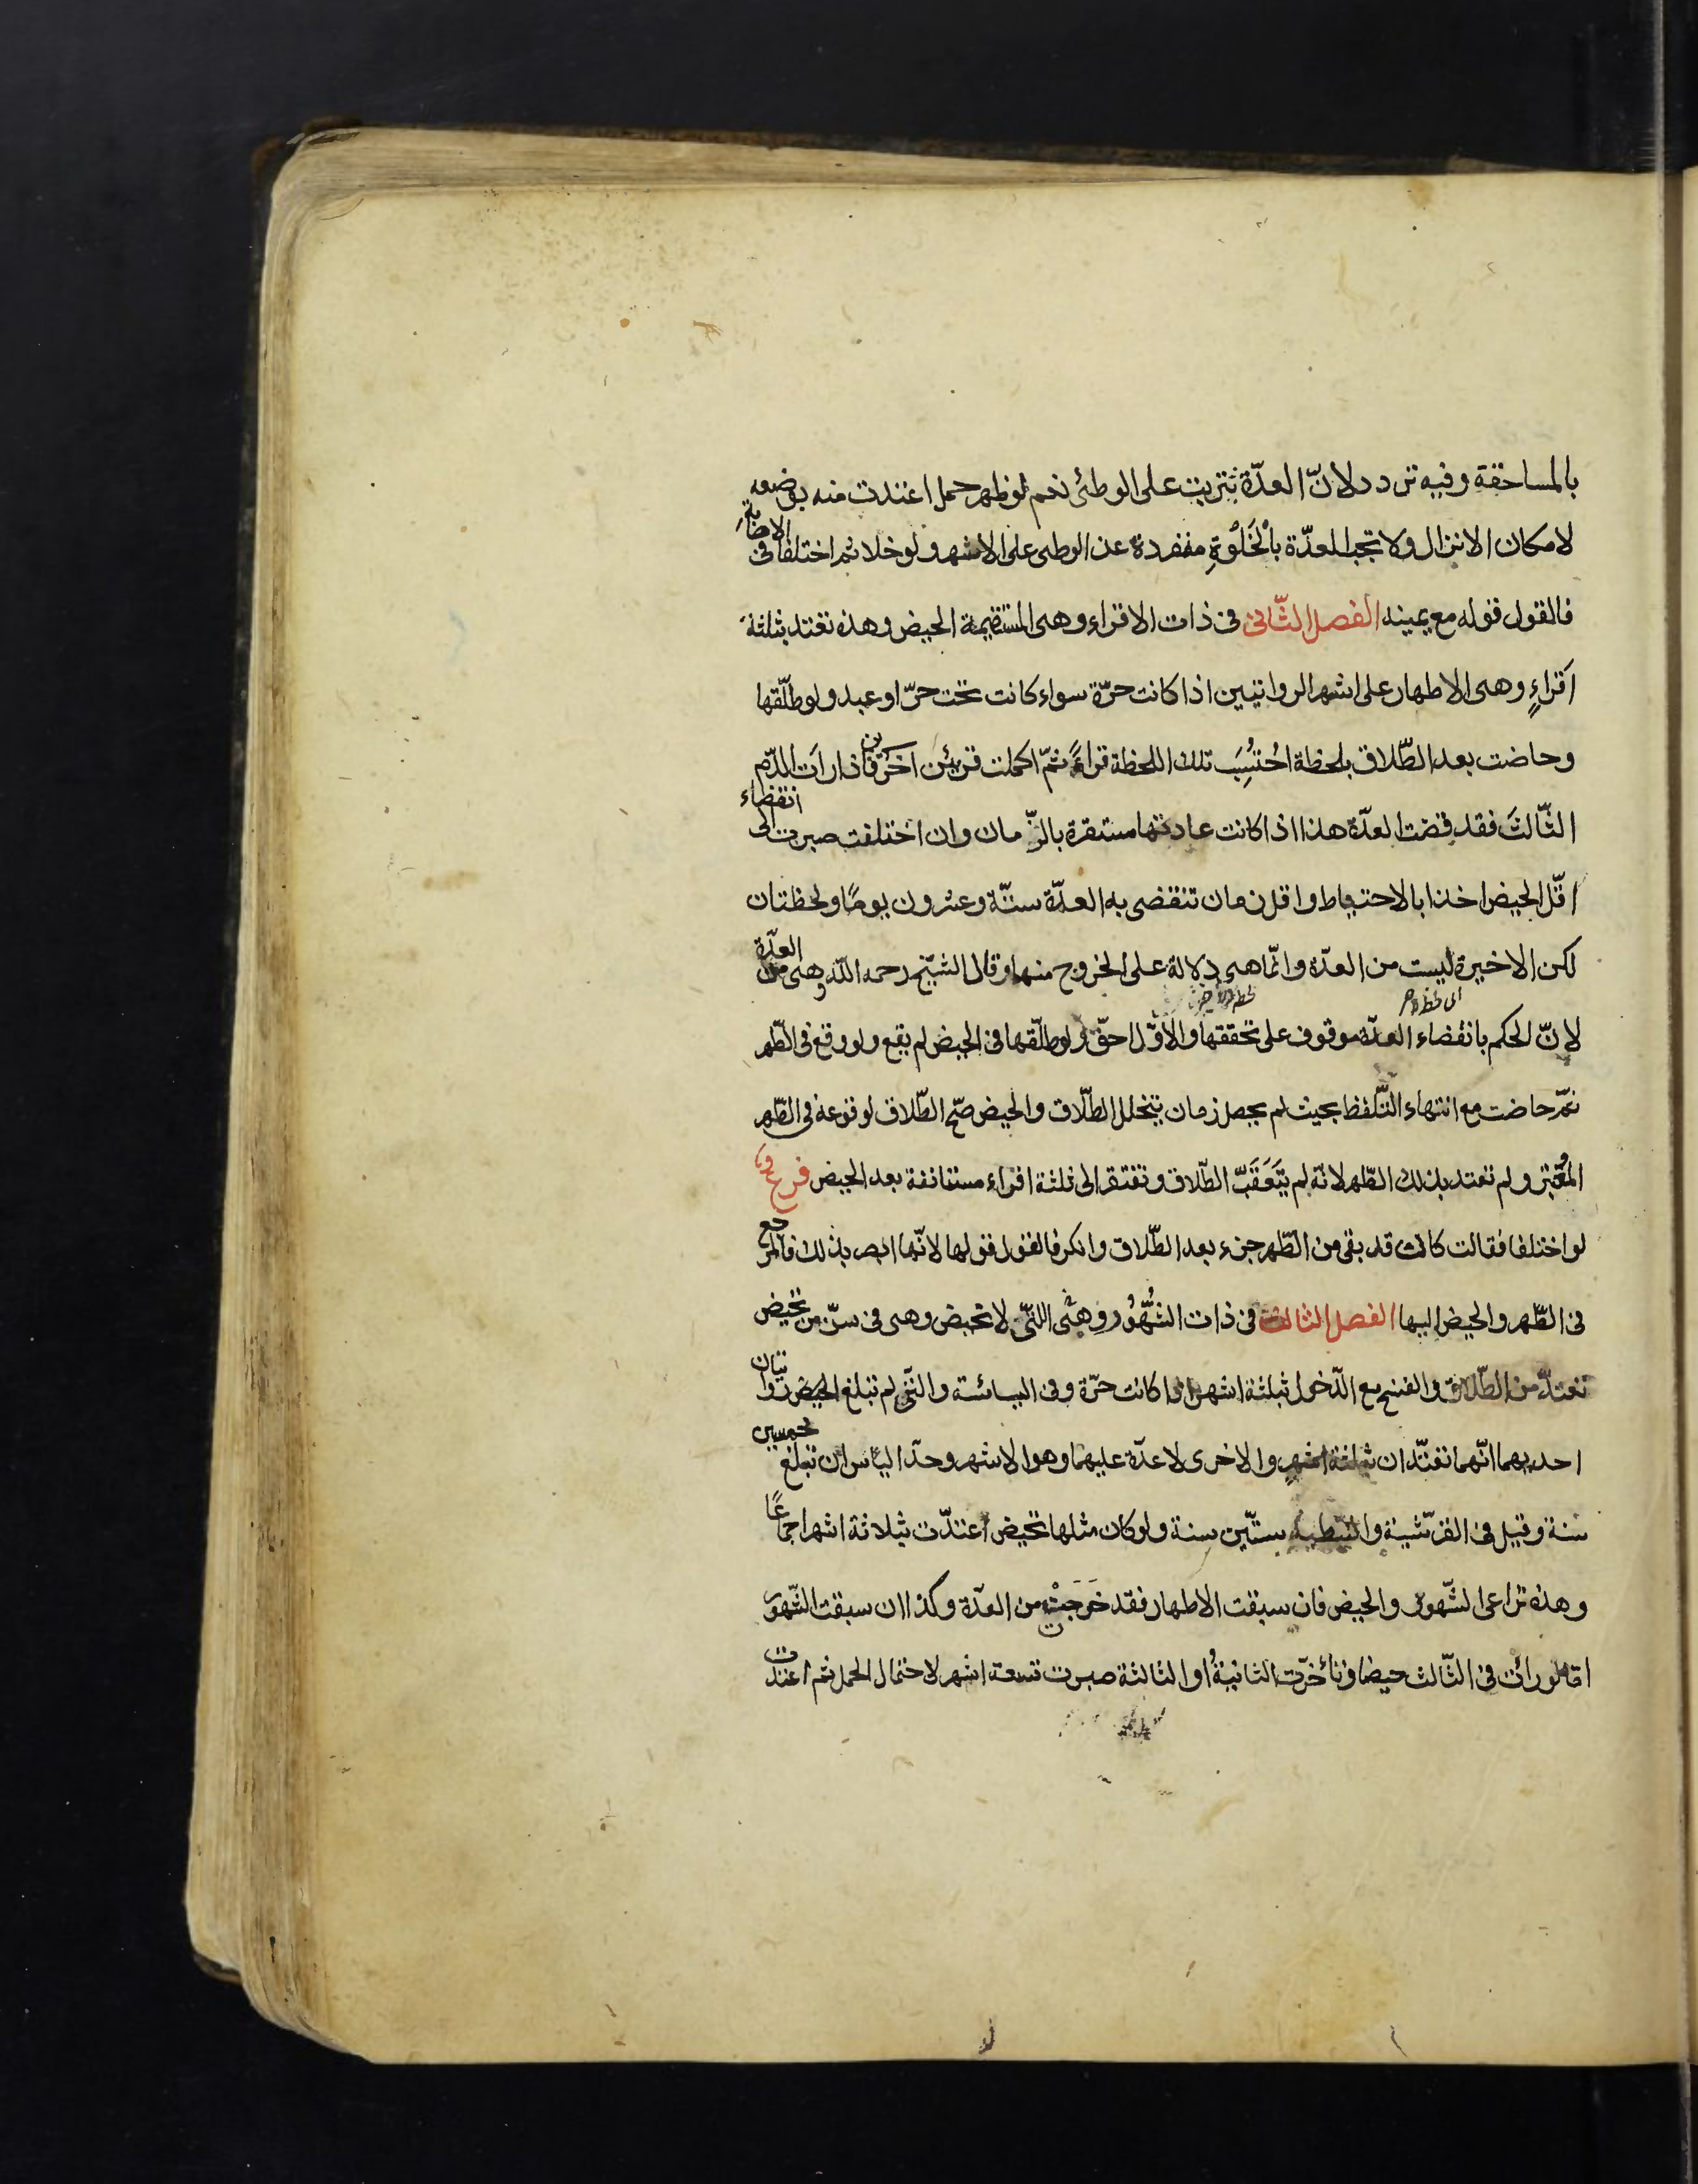 بالمساحقة وفيه تردد لانّ العدّة تترتب على الوطئ نعم لو ظهر حمل اعتدت منه بوضعه
لامكان الانزال ولا تجب العدّة بالْخَلْوَةِ منفردة عن الوطى على الاشهر ولو خلا ثم اختلفا فى الاصابة
فالقول قوله مع يمينه الفصل الثّانى فى ذات الاقراء وهى المستقيمة الحيض وهذه تعتد بثلثة
اَقراءٍ وهى الاطهار على اشهر الروايتين اذا كانت حرّة سواء كانت تحت حرّ او عبد ولو طلّقها
وحاضت بعد الطّلاق بلحظة احْتُسِبَ تلك اللحظة قراءً ثمّ اكملت قرئين اخرين فاذا رات الدّم
الثّالثَ فقد قضت العدّة هذا اذا كانت عادتها مستقرة بالزّمان وان اختلفت صبرت الى انقضاء
اقلّ الحيض اخذا بالاحتياط واقل زمان تنقضى به العدّة ستّة وعشرون يومًا ولحظتان
لكن الاخيرة ليست من العدّة وانّما هى دلالة على الخروج منها وقال الشّيخ رحمه اللّه وهى من العدّة
لانّ الحكم بانقضاء العدّة موقوف على تحققها والاوّل احقّ ولو طلّقها فى الحيض لم يقع ولو وقع فى الطّهر
ثمّ حاضت مع انتهاء التّلفظ بحيث لم يحصل زمان يتخلل الطّلاق والحيض صّح الطّلاق لوقوعه فى الطّهر
المُعْتَبَر ولم تعتد بذلك الطّهر لانّه لم يَتَعَقَّبْ الطّلاق وتفتقر الى ثلثة اقراء مستانفة بعد الحيض فرعٌ
لو اختلفا فقالت كانت قد بقى من الطّهر جزء بعد الطّلاق وانكر فالقول قولها لانّها ابصر بذلك فالمرجع
فى الطّهر والحيض اليها الفصل الثالث فى ذات الشُّهُوُر وهى الّتى لا تحيض وهى فى سنّ من تحيض
تعتدّ من الطّلاق والفسخ مع الدّخول بثلثة اشهر اذا كانت حرّة وفى اليائسة والّتى لم تبلغ الحيض روايتان
احديهما انّهما تعتدّان بثلثة اشهرٍ والاخرى لا عدّة عليهما وهو الاشهر وحدّ الياس ان تبلغ خمسين
سنة وقيل فى القرشية والنّبطية ستّين سنة ولو كان مثلها تحيض اعتدّت بثلاثة اشهر اجماعًا
وهذه تراعى الشّهور والحيض فان سبقت الاطهار فقد خَرَجَتْ من العدّة وكذا ان سبقت الشّهور
امّا لو رات فى الثّالث حيضا وتأخّرت الثانيةُ او الثالثة صبرت تسعة اشهر لاحتمال الحمل ثم اعتدت